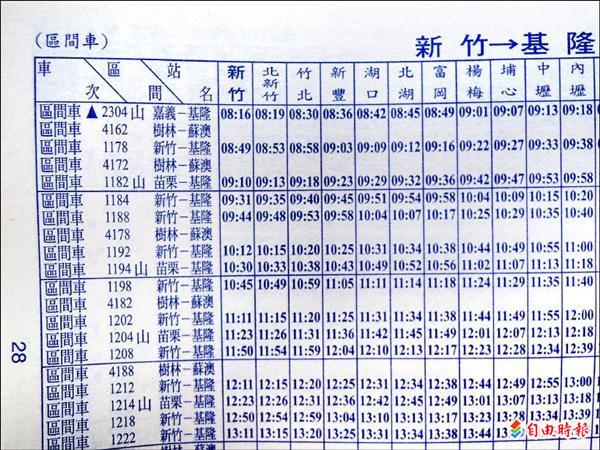 (區間車) 新竹→基隆
車次 區間 站名 新竹 北新竹 竹北 新豐 湖口 北湖 富岡 楊梅 埔心 中壢 內壢
區間車 ▲ 2304 山 嘉義－基隆 08:16 08:19 08:30 08:36 08:42 08:45 08:49 09:01 09:07 09:13 09:18
區間車 4162 樹林－蘇澳
區間車 1178 新竹－基隆 08:49 08:53 08:58 09:03 09:09 09:12 09:16 09:22 09:27 09:33 09:38
區間車 4172 樹林－蘇澳
區間車 1182 山 苗栗－基隆 09:10 09:13 09:18 09:23 09:29 09:32 09:36 09:42 09:47 09:53 09:58
區間車 1184 新竹－基隆 09:31 09:35 09:40 09:45 09:51 09:54 09:58 10:04 10:09 10:15 10:20
區間車 1188 新竹－基隆 09:44 09:48 09:53 09:58 10:04 10:07 10:17 10:25 10:29 10:35 10:40
區間車 4178 樹林－蘇澳
區間車 1192 新竹－基隆 10:12 10:15 10:20 10:25 10:31 10:34 10:38 10:44 10:49 10:55 11:00
區間車 1194 山 苗栗－基隆 10:30 10:33 10:38 10:43 10:49 10:52 10:56 11:02 11:07 11:13 11:18
區間車 1198 新竹－基隆 10:45 10:49 10:59 11:05 11:11 11:14 11:18 11:24 11:29 11:35 11:40
區間車 4182 樹林－蘇澳
區間車 1202 新竹－基隆 11:11 11:15 11:20 11:25 11:31 11:34 11:38 11:44 11:49 11:55 12:00
區間車 1204 山 苗栗－基隆 11:23 11:26 11:31 11:36 11:42 11:45 11:49 12:01 12:07 12:13 12:18
區間車 1208 新竹－基隆 11:50 11:54 11:59 12:04 12:10 12:13 12:17 12:23 12:28 12:34 12:39
區間車 4188 樹林－蘇澳
區間車 1212 新竹－基隆 12:11 12:15 12:20 12:25 12:31 12:34 12:38 12:44 12:49 12:55 13:00
區間車 1214 山 苗栗－基隆 12:23 12:26 12:31 12:36 12:42 12:45 12:49 13:01 13:07 13:13 13:18
區間車 1218 新竹－基隆 12:50 12:54 12:59 13:04 13:10 13:13 13:17 13:23 13:28 13:34 13:39
區間車 1222 新竹－基隆 13:11 13:15 13:20 13:25 13:31 13:34 13:38 13:44
28
自由時報